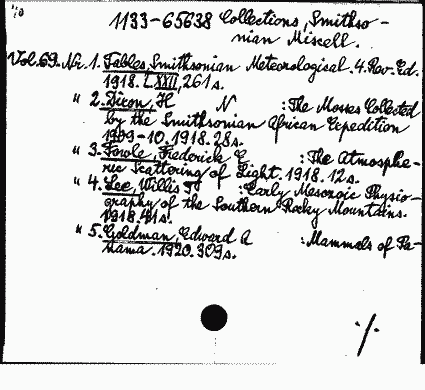 1133-65638 Collections, Smithso-
nian Miscell.
Vol. 69. Nr. 1. Tables, Smithsonian Meteorological. 4. Rev. Ed.
1918. LXXII, 261 s.
" 2. Dixon, H N : The Mosses Collected
by the Smithsonian African Expedition
1909-10. 1918. 28 s.
" 3. Fowle, Frederick E : The Atmosphe-
ric Scattering of Light. 1918. 12 s.
" 4. Lee, Willis T : Early Mesozoic Physio-
graphy of the Southern Rocky Mountains.
1918. 41 s.
" 5. Goldman, Edward A : Mammals of Pa-
nama. 1920. 309 s.